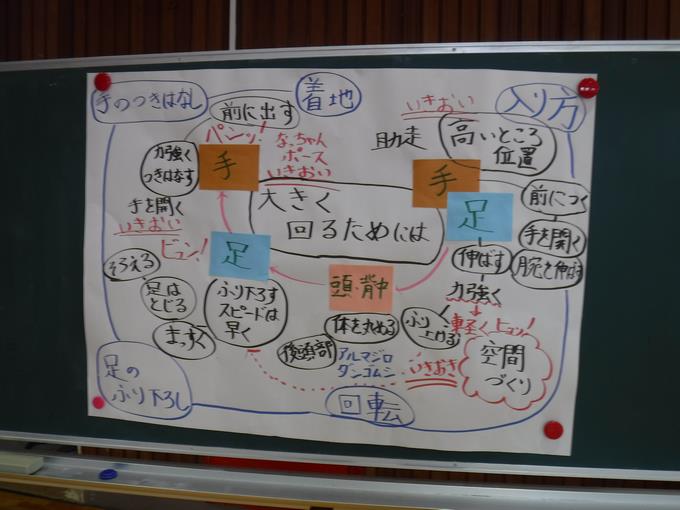 手のつきはなし
着地
入り方
前に出す
パンッ!
なっちゃん
ポーズ
いきおい
手
力強く
つきはなす
手を開く
いきおい
ビュン!
足
そろえる
足は
とじる
まっすぐ
ふり下ろす
スピードは
早く
大きく
回るためには
いきおい
助走
高いところ
位置
手
足
前につく
手を開く
腕を伸ばす
伸ばす
力強く
ふり
上げる
軽くヒョン!
空間
づくり
いきおき
頭・背中
体を丸める
後頭部
アルマジロ
ダンゴムシ
足の
ふり下ろし
回転